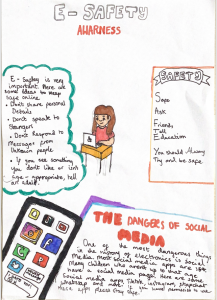 E-SAFETY
AWARNESS
E - Safety is very
important. Here are
some ideas to keep
safe online.
• Don't share personal
Details
• Don't speak to
Strangers
• Don't Respond to
Messages from
Unknown people
• If you see something
you don't like or isn't
age-appropriate, tell
an adult.
SAFETY
Safe
Ask
Friends
Tell
Education
You should Always
Try and be safe.
THE DANGERS OF SOCIAL
MEDIA
One of the most dangerous things
in the history of electronics is Social
Media. Most Social media apps are 13+
Many children who aren't up to that age
have a social media page. Here are some
Social media apps: TikTok, instagram, snapchat
whatsapp and
these apps please stay safe.